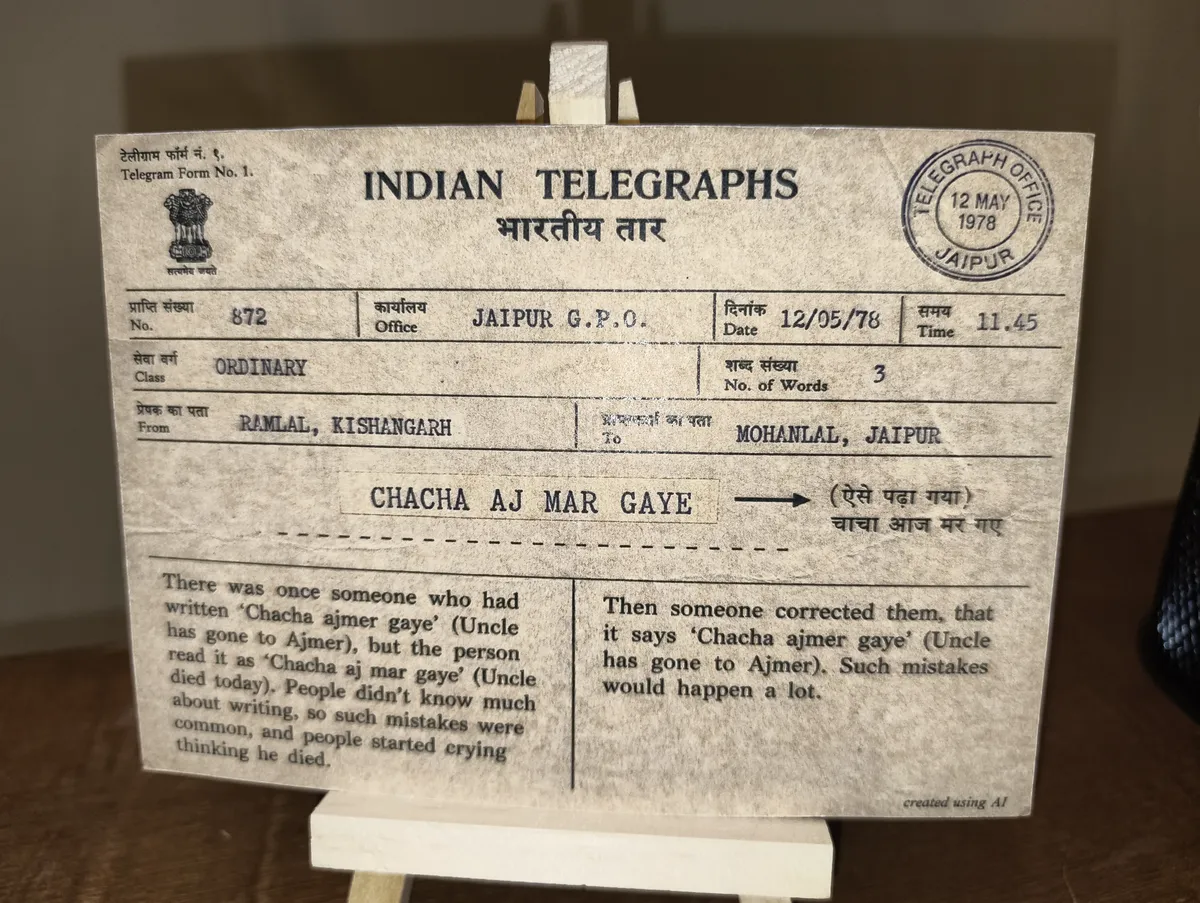 टेलीग्राम फॉर्म नं. १.
Telegram Form No. 1.
सत्यमेव जयते
INDIAN TELEGRAPHS
भारतीय तार
TELEGRAPH OFFICE
12 MAY
1978
JAIPUR
प्राप्ति संख्या
No.
872
कार्यालय
Office
JAIPUR G.P.O.
दिनांक
Date
12/05/78
समय
Time
11.45
सेवा वर्ग
Class
ORDINARY
शब्द संख्या
No. of Words
3
प्रेषक का पता
From
RAMLAL, KISHANGARH
का पता
To
MOHANLAL, JAIPUR
CHACHA AJ MAR GAYE
(ऐसे पढ़ा गया)
चाचा आज मर गए
There was once someone who had
written ‘Chacha ajmer gaye’ (Uncle
has gone to Ajmer), but the person
read it as ‘Chacha aj mar gaye’ (Uncle
died today). People didn’t know much
about writing, so such mistakes were
common, and people started crying
thinking he died.
Then someone corrected them, that
it says ‘Chacha ajmer gaye’ (Uncle
has gone to Ajmer). Such mistakes
would happen a lot.
created using AI